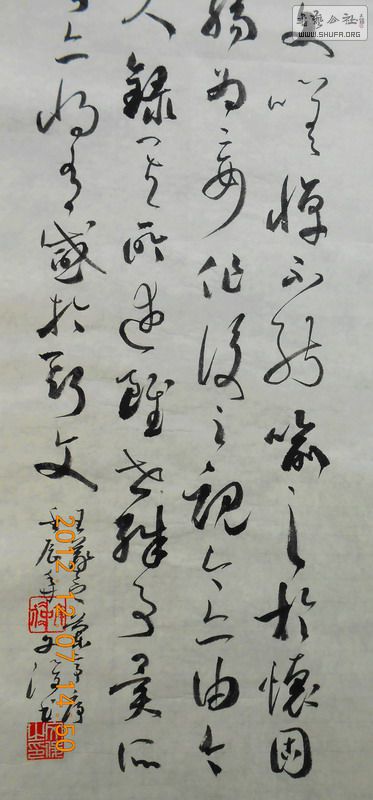 文嗟悼不能喻之於懷固
殤為妄作後之視今亦由今
人錄其所述雖世殊事異所
亦將有感於斯文
羲之蘭亭序
壬辰
2012.12.07 14:50
书艺公社
WWW.SHUFA.ORG